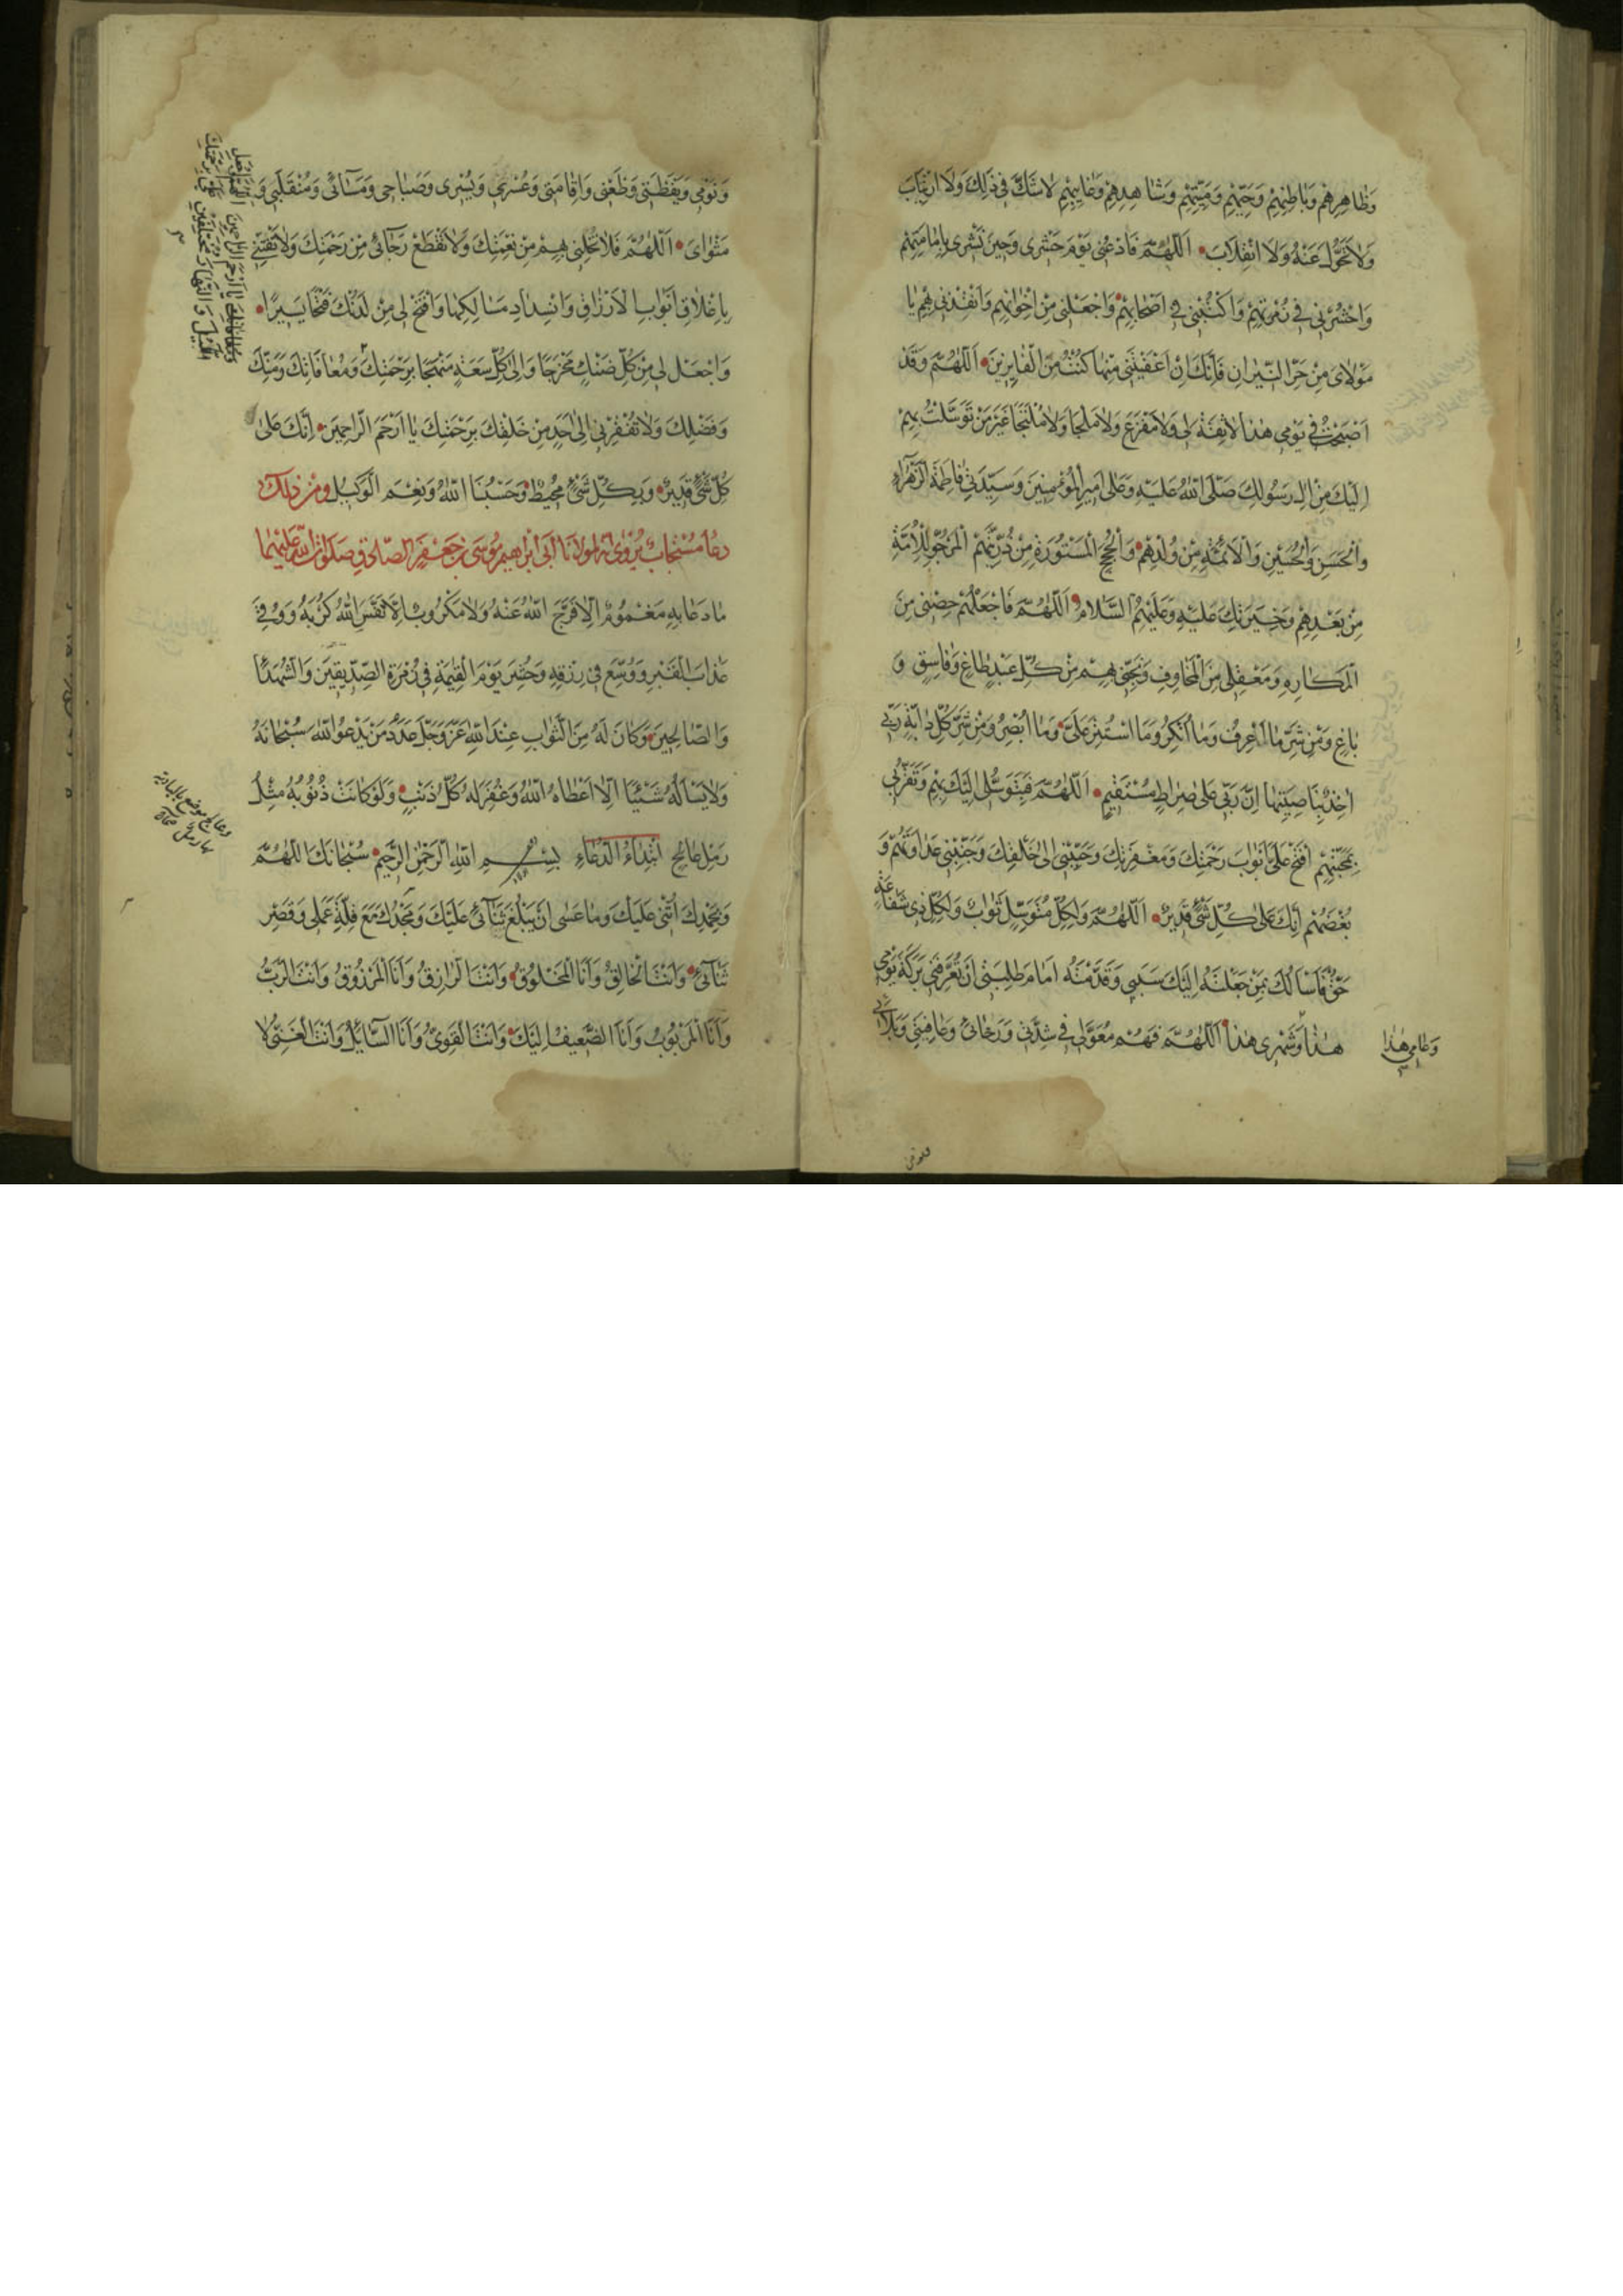 وَظَاهِرِهِمْ وَبَاطِنِهِمْ وَحَيِّهِمْ وَمَيِّتِهِمْ وَشَاهِدِهِمْ وَغَايِبِهِمْ لَا شَكَّ فِي ذَلِكَ وَلَا ارْتِيَابَ
وَلَا تَحَوُّلَ عَنْهُ وَلَا انْقِلَابَ اَللّٰهُمَّ فَادْعُنِي يَوْمَ حَشْرِي وَحِينَ نَشْرِي بِاِمَامَتِهِمْ
وَاحْشُرْنِي فِي زُمْرَتِهِمْ وَاكْتُبْنِي فِي اَصْحَابِهِمْ وَاجْعَلْنِي مِنْ اِخْوَانِهِمْ وَانْقِذْنِي بِهِمْ يَا
مَوْلَايَ مِنْ حَرِّ النِّيرَانِ فَاِنَّكَ اِنْ اَعْفَيْتَنِي مِنْهَا كُنْتُ مِنَ الْفَايِزِينَ اَللّٰهُمَّ وَقَدْ
اَصْبَحْتُ فِي يَوْمِي هَذَا لَا ثِقَةَ لِي وَلَا مَفْزَعَ وَلَا مَلْجَأَ وَلَا مُلْتَجَأَ غَيْرَ مَنْ تَوَسَّلْتُ بِهِمْ
اِلَيْكَ مِنْ اٰلِ رَسُولِكَ صَلَّى اللّٰهُ عَلَيْهِ وَعَلَى اَمِيرِ الْمُؤْمِنِينَ وَسَيِّدَتِي فَاطِمَةَ الزَّهْرَاءِ
وَالْحَسَنِ وَالْحُسَيْنِ وَالْاَئِمَّةِ مِنْ وُلْدِهِمْ وَالْحُجَّةِ الْمَسْتُورَةِ مِنْ ذُرِّيَّتِهِمُ الْمَرْجُوِّ لِلْاُمَّةِ
مِنْ بَعْدِهِمْ وَخِيَرَتِكَ عَلَيْهِ وَعَلَيْهِمُ السَّلَامُ اَللّٰهُمَّ فَاجْعَلْهُمْ حِصْنِي مِنَ
الْمَكَارِهِ وَمَعْقِلِي مِنَ الْمَخَاوِفِ وَنَجِّنِي بِهِمْ مِنْ كُلِّ عَبْدٍ طَاغٍ وَفَاسِقٍ وَ
بَاغٍ وَمِنْ شَرِّ مَا اَعْرِفُ وَمَا اُنْكِرُ وَمَا اسْتَتَرَ عَلَيَّ وَمَا اُبْصِرُ وَمِنْ شَرِّ كُلِّ دَابَّةٍ رَبِّي
اٰخِذٌ بِنَاصِيَتِهَا اِنَّ رَبِّي عَلَى صِرَاطٍ مُسْتَقِيمٍ اَللّٰهُمَّ فَبِتَوَسُّلِي اِلَيْكَ بِهِمْ وَتَقَرُّبِي
بِمَحَبَّتِهِمْ افْتَحْ عَلَيَّ اَبْوَابَ رَحْمَتِكَ وَمَغْفِرَتِكَ وَحَبِّبْنِي اِلَى خَلْقِكَ وَجَنِّبْنِي عَدَاوَتَهُمْ وَ
بُغْضَهُمْ اِنَّكَ عَلَى كُلِّ شَيْءٍ قَدِيرٌ اَللّٰهُمَّ وَلِكُلِّ مُتَوَسِّلٍ ثَوَابٌ وَلِكُلِّ ذِي شَفَاعَةٍ
حَقٌّ فَاَسْاَلُكَ بِمَنْ جَعَلْتَهُ اِلَيْكَ سَبَبِي وَقَدَّمْتُهُ اَمَامَ طَلِبَتِي اَنْ تُعَرِّفَنِي بَرَكَةَ يَوْمِي
هَذَا وَشَهْرِي هَذَا اَللّٰهُمَّ فَهُمْ مُعَوَّلِي فِي شِدَّتِي وَرَخَائِي وَعَافِيَتِي وَبَلَائِي
وَعَامِي هَذَا
وَنَوْمِي وَيَقَظَتِي وَظَعْنِي وَاِقَامَتِي وَعُسْرِي وَيُسْرِي وَصَبَاحِي وَمَسَائِي وَمُنْقَلَبِي وَ
مَثْوَايَ اَللّٰهُمَّ فَلَا تُخْلِنِي بِهِمْ مِنْ نِعْمَتِكَ وَلَا تَقْطَعْ رَجَائِي مِنْ رَحْمَتِكَ وَلَا تَفْتِنِّي
بِاِغْلَاقِ اَبْوَابِ الْاَرْزَاقِ وَانْسِدَادِ مَسَالِكِهَا وَافْتَحْ لِي مِنْ لَدُنْكَ فَتْحًا يَسِيرًا
وَاجْعَلْ لِي مِنْ كُلِّ ضَنْكٍ مَخْرَجًا وَاِلَى كُلِّ سَعَةٍ مَنْهَجًا بِرَحْمَتِكَ وَمُعَافَاتِكَ وَمَنِّكَ
وَفَضْلِكَ وَلَا تُفْقِرْنِي اِلَى اَحَدٍ مِنْ خَلْقِكَ بِرَحْمَتِكَ يَا اَرْحَمَ الرَّاحِمِينَ اِنَّكَ عَلَى
كُلِّ شَيْءٍ قَدِيرٌ وَبِكُلِّ شَيْءٍ مُحِيطٌ وَحَسْبُنَا اللّٰهُ وَنِعْمَ الْوَكِيلُ وَمِنْ ذَلِكَ
دُعَاءٌ مُسْتَجَابٌ يُرْوَى اَنَّهُ لِمَوْلَانَا اَبِي اِبْرَاهِيمَ مُوسَى بْنِ جَعْفَرٍ الصَّادِقِ صَلَوَاتُ اللّٰهِ عَلَيْهِمَا
مَا دَعَا بِهِ مَغْمُومٌ اِلَّا فَرَّجَ اللّٰهُ عَنْهُ وَلَا مَكْرُوبٌ اِلَّا نَفَّسَ اللّٰهُ كَرْبَهُ وَوُقِيَ
عَذَابَ الْقَبْرِ وَوُسِّعَ فِي رِزْقِهِ وَحُشِرَ يَوْمَ الْقِيٰمَةِ فِي زُمْرَةِ الصِّدِّيقِينَ وَالشُّهَدَاءِ
وَالصَّالِحِينَ وَكَانَ لَهُ مِنَ الثَّوَابِ عِنْدَ اللّٰهِ عَزَّ وَجَلَّ عَدَدُ مَنْ يَدْعُو اللّٰهَ سُبْحَانَهُ
وَلَا يَسْاَلُهُ شَيْئًا اِلَّا اَعْطَاهُ اللّٰهُ وَغُفِرَ لَهُ كُلُّ ذَنْبٍ وَلَوْ كَانَتْ ذُنُوبُهُ مِثْلَ
رَمْلِ عَالِجٍ ابْتِدَاءُ الدُّعَاءِ بِسْمِ اللّٰهِ الرَّحْمٰنِ الرَّحِيمِ سُبْحَانَكَ اللّٰهُمَّ
وَبِحَمْدِكَ اُثْنِي عَلَيْكَ وَمَا عَسَى اَنْ يَبْلُغَ ثَنَائِي عَلَيْكَ وَمَجْدُكَ مَعَ قِلَّةِ عَمَلِي وَقِصَرِ
ثَنَائِي وَاَنْتَ الْخَالِقُ وَاَنَا الْمَخْلُوقُ وَاَنْتَ الرَّازِقُ وَاَنَا الْمَرْزُوقُ وَاَنْتَ الرَّبُّ
وَاَنَا الْمَرْبُوبُ وَاَنَا الضَّعِيفُ اِلَيْكَ وَاَنْتَ الْقَوِيُّ وَاَنَا السَّائِلُ وَاَنْتَ الْغَنِيُّ لَا